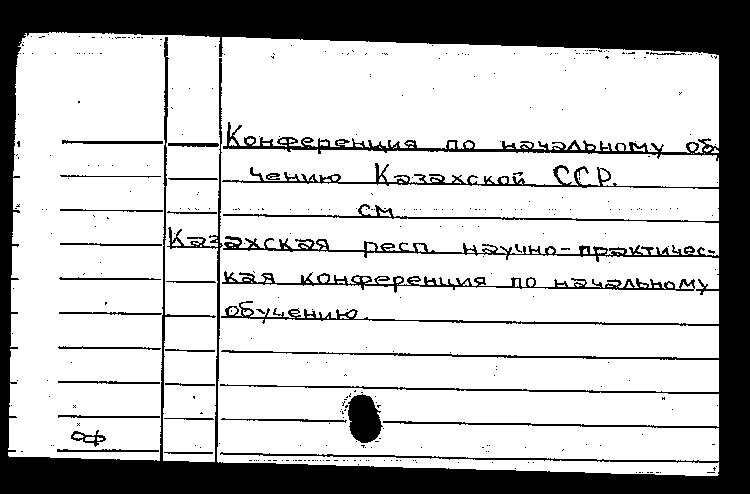 Конференция по начальному обу
чению Казахской ССР.
см
Казахская респ. научно-практичес-
кая конференция по начальному
обучению.
оф